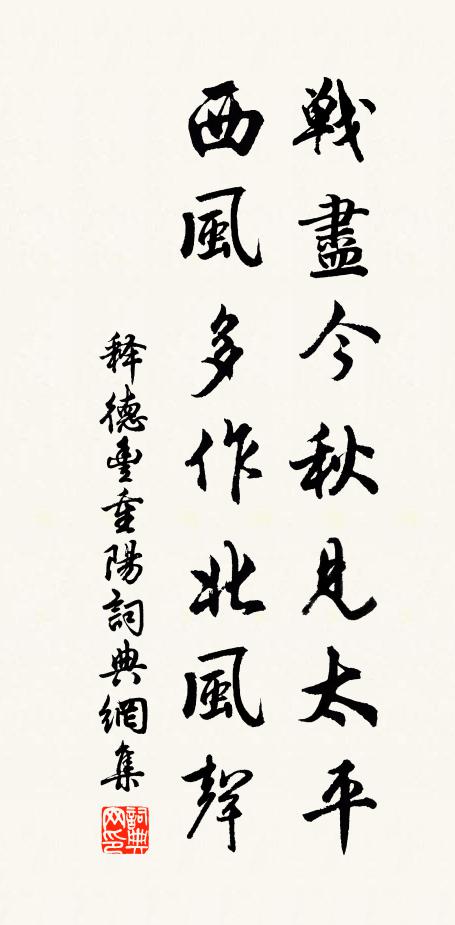 戰盡今秋見太平
西風多作北風聲
释德豐重陽詞典網集
詞典
网印